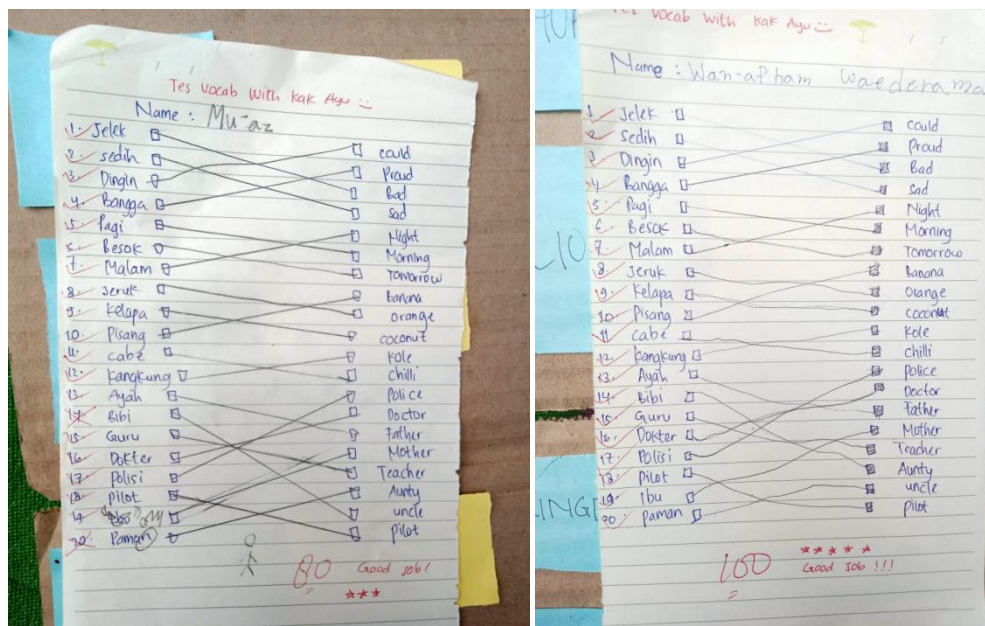 Tes Vocab With Kak Ayu
Name : Mu-az
1. Jelek
2. sedih
3. Dingin
4. Bangga
5. Pagi
6. Besok
7. Malam
8. Jeruk
9. Kelapa
10. Pisang
11. cabe
12. Kangkung
13. Ayah
14. Bibi
15. Guru
16. Dokter
17. Polisi
18. Pilot
19.
20. Paman
could
Proud
Bad
Sad
Night
Morning
Tomorrow
Banana
orange
coconut
kole
chilli
Police
Doctor
Father
Mother
Teacher
Aunty
uncle
Pilot
80 Good Job!
Tes Vocab With Kak Ayu
Name : Wan-afham Waedorama
1. Jelek
2. Sedih
3. Dingin
4. Bangga
5. Pagi
6. Besok
7. Malam
8. Jeruk
9. Kelapa
10. Pisang
11. Cabe
12. Kangkung
13. Ayah
14. Bibi
15. Guru
16. Dokter
17. Polisi
18. Pilot
19. Ibu
20. Paman
Could
Proud
Bad
Sad
Night
Morning
Tomorrow
Banana
Orange
coconut
Kole
chilli
Police
Doctor
Father
Mother
Teacher
Aunty
uncle
Pilot
100
Good Job !!!